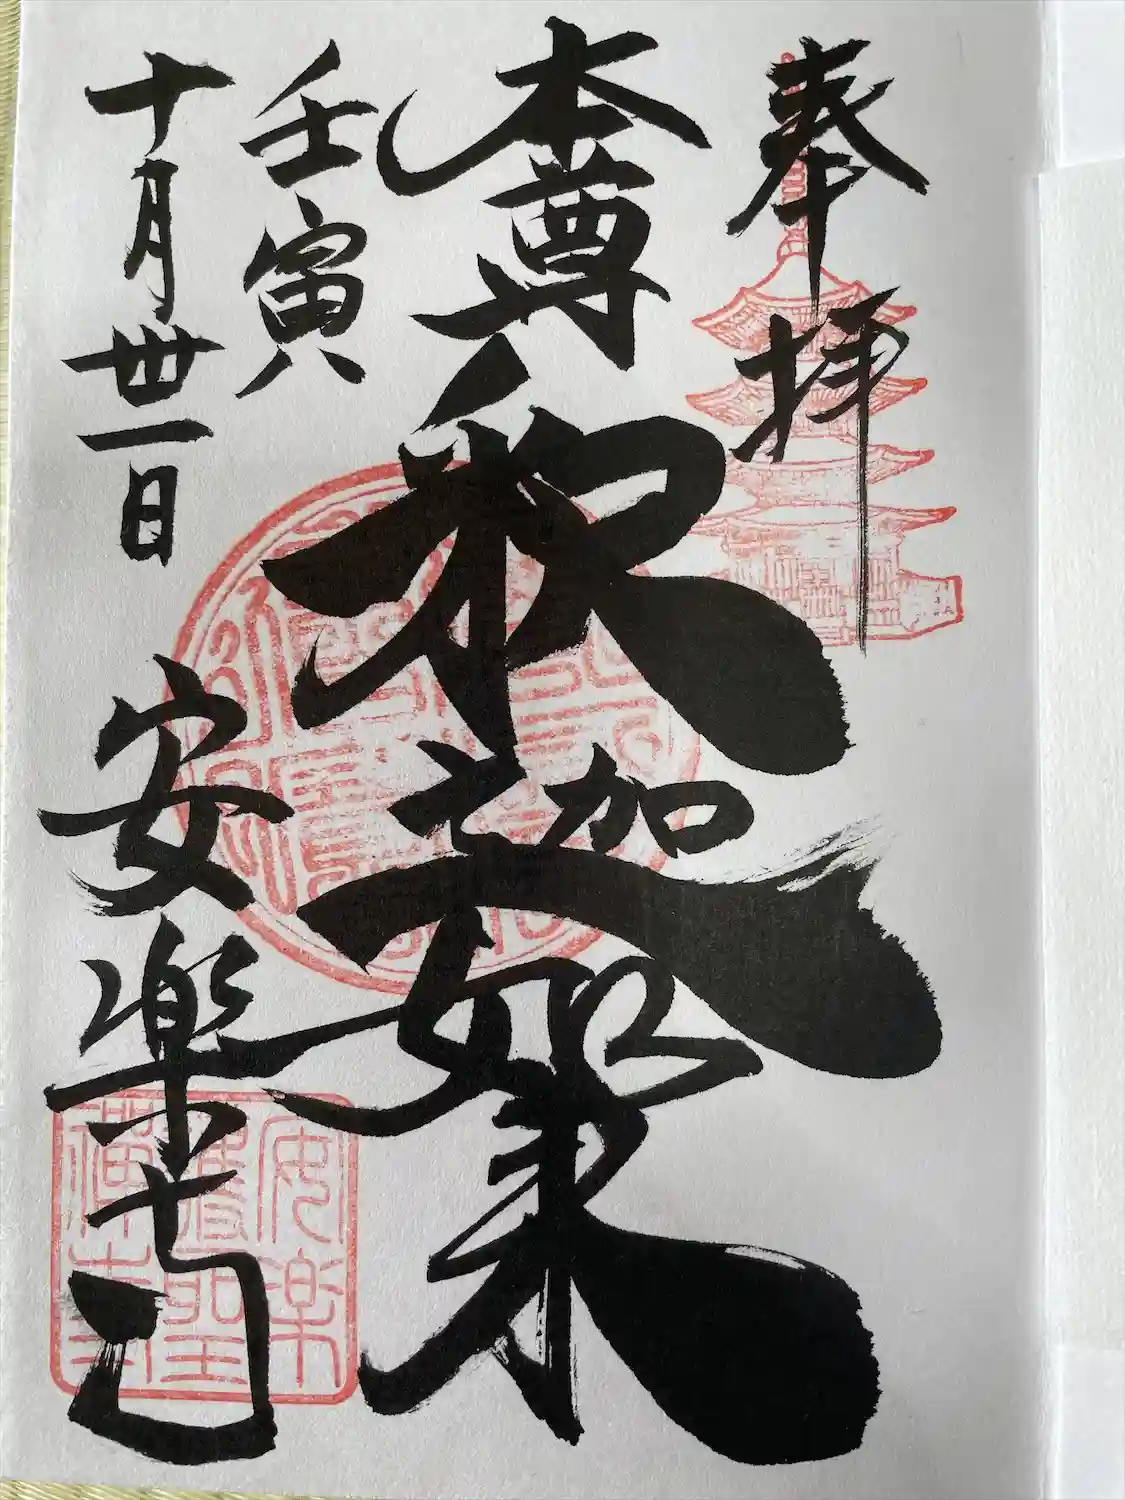 奉拝
本尊釈迦如来
壬寅
十月卅一日
安楽寺